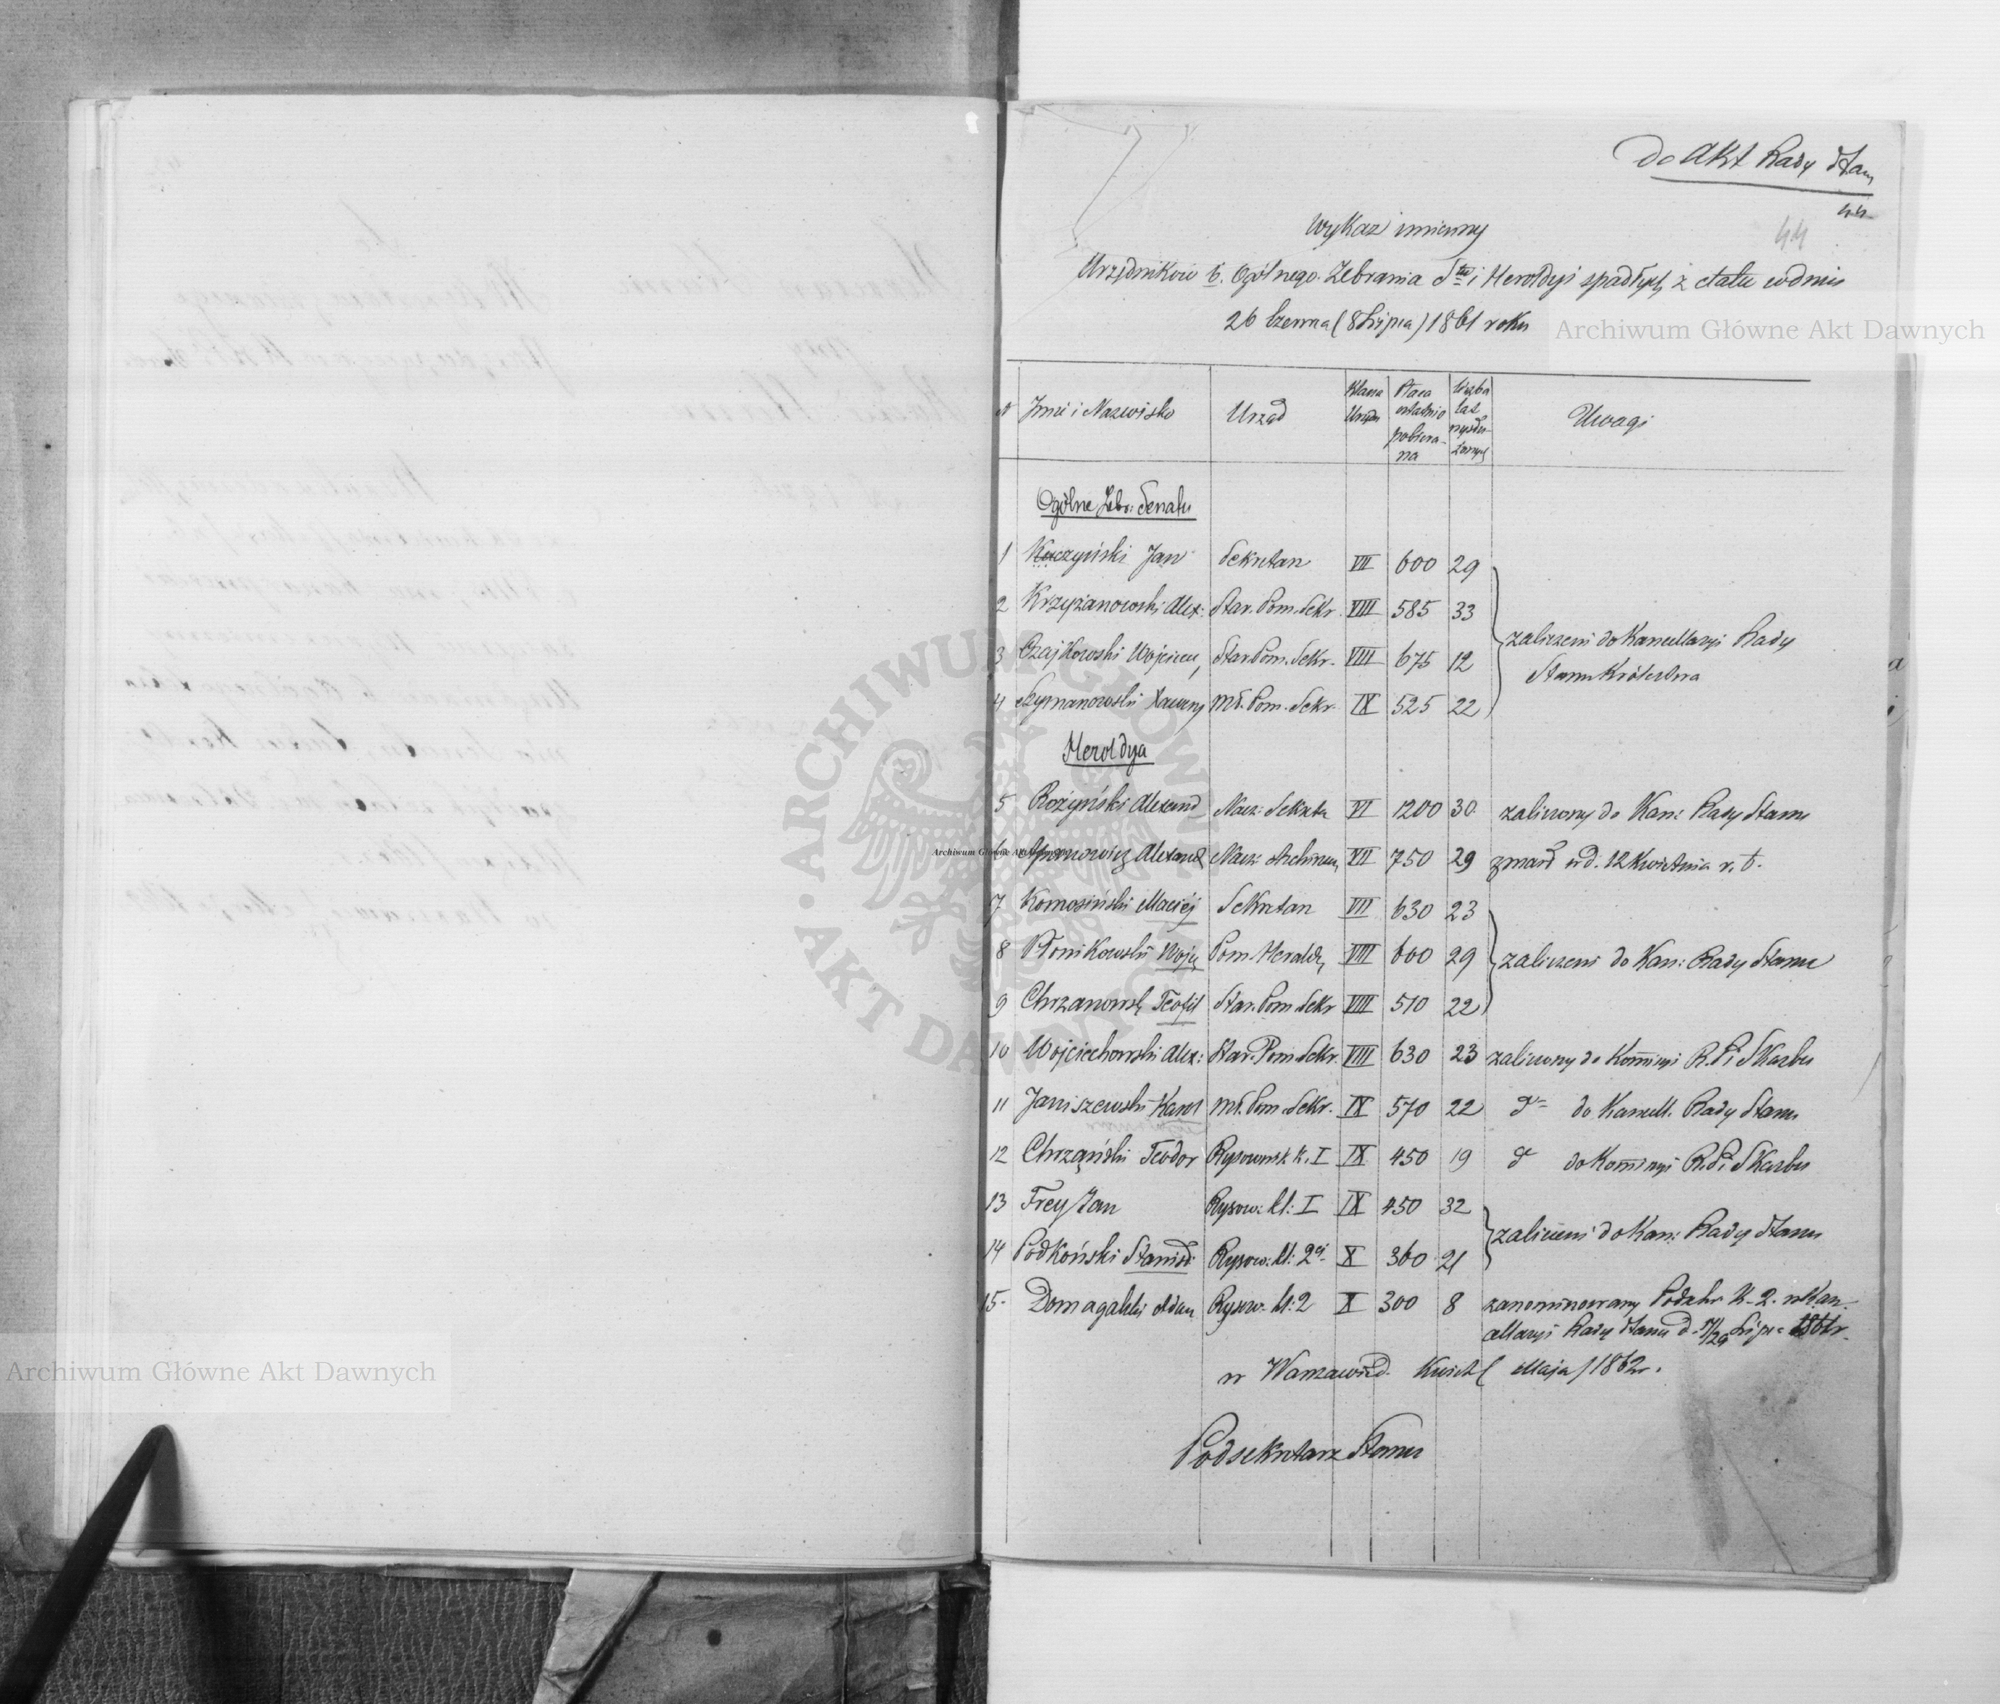 do Akt Rady Stanu
44
44
Wykaz imienny
Urzędników b. Ogólnego Zebrania Stu i Heroldyi spadłych z etatu w dniu
26 Czerwca (8 Lipca) 1861 roku
N Imie i Nazwisko Urząd Klassa Urzędu Płaca ostatnio pobierana liczba lat wysłużonych Uwagi
Ogólne Zebr: Senatu
1 Kuczyński Jan Sekretarz VII 600 29
2 Krzyżanowski Alex: Star. Pom. Sekr. VIII 585 33
3 Czajkowski Wojciech Star. Pom. Sekr. VIII 675 12
zaliczeni do Kancellaryi Rady
Stanu Królestwa
4 Szymanowski Xawery Mł. Pom. Sekr. IX 525 22
Heroldya
5 Rożyński Alexand Nacz: Sekreta VI 1200 30 zaliczony do Kan: Rady Stanu
6 Alexand Nacz: Archiwum VII 750 29 zmarł w d. 12 Kwietnia r. b.
7 Komosiński Maciej Sekretarz VII 630 23
8 Płonikowski Wojc Pom. Herald VIII 600 29 zaliczeni do Kan: Rady Stanu
9 Chrzanowsk Teofil Star. Pom Sekr VIII 510 22
10 Wojciechowski Alex: Star. Pom Sekr. VIII 630 23 zaliczony do Kommisyi R. P. i Skarbu
11 Janiszewski Karol Mł. Pom. Sekr. IX 570 22 do do Kancell. Rady Stanu
12 Chrząński Teodor Rysownik k. I IX 450 19 do do Kommisyi R. P. i Skarbu
13 Frey Jan Rysow: kl: I IX 450 32
zaliczeni do Kan: Rady Stanu
14 Podkoński Stanisł: Rysow: kl: 2ej X 360 21
15. Domagalski Adam Rysow. kl: 2 X 300 8 zanominowany Podsekr K. 2. w Kan-
cellaryi Rady Stanu d. 17/29 Lipca 1861r.
w Warszawie d. Kwiet ( Maja ) 1862r.
Podsekretarz Stanu
Archiwum Główne Akt Dawnych
Archiwum Główne Akt Dawnych
ARCHIWUM GŁÓWNE AKT DAWNYCH